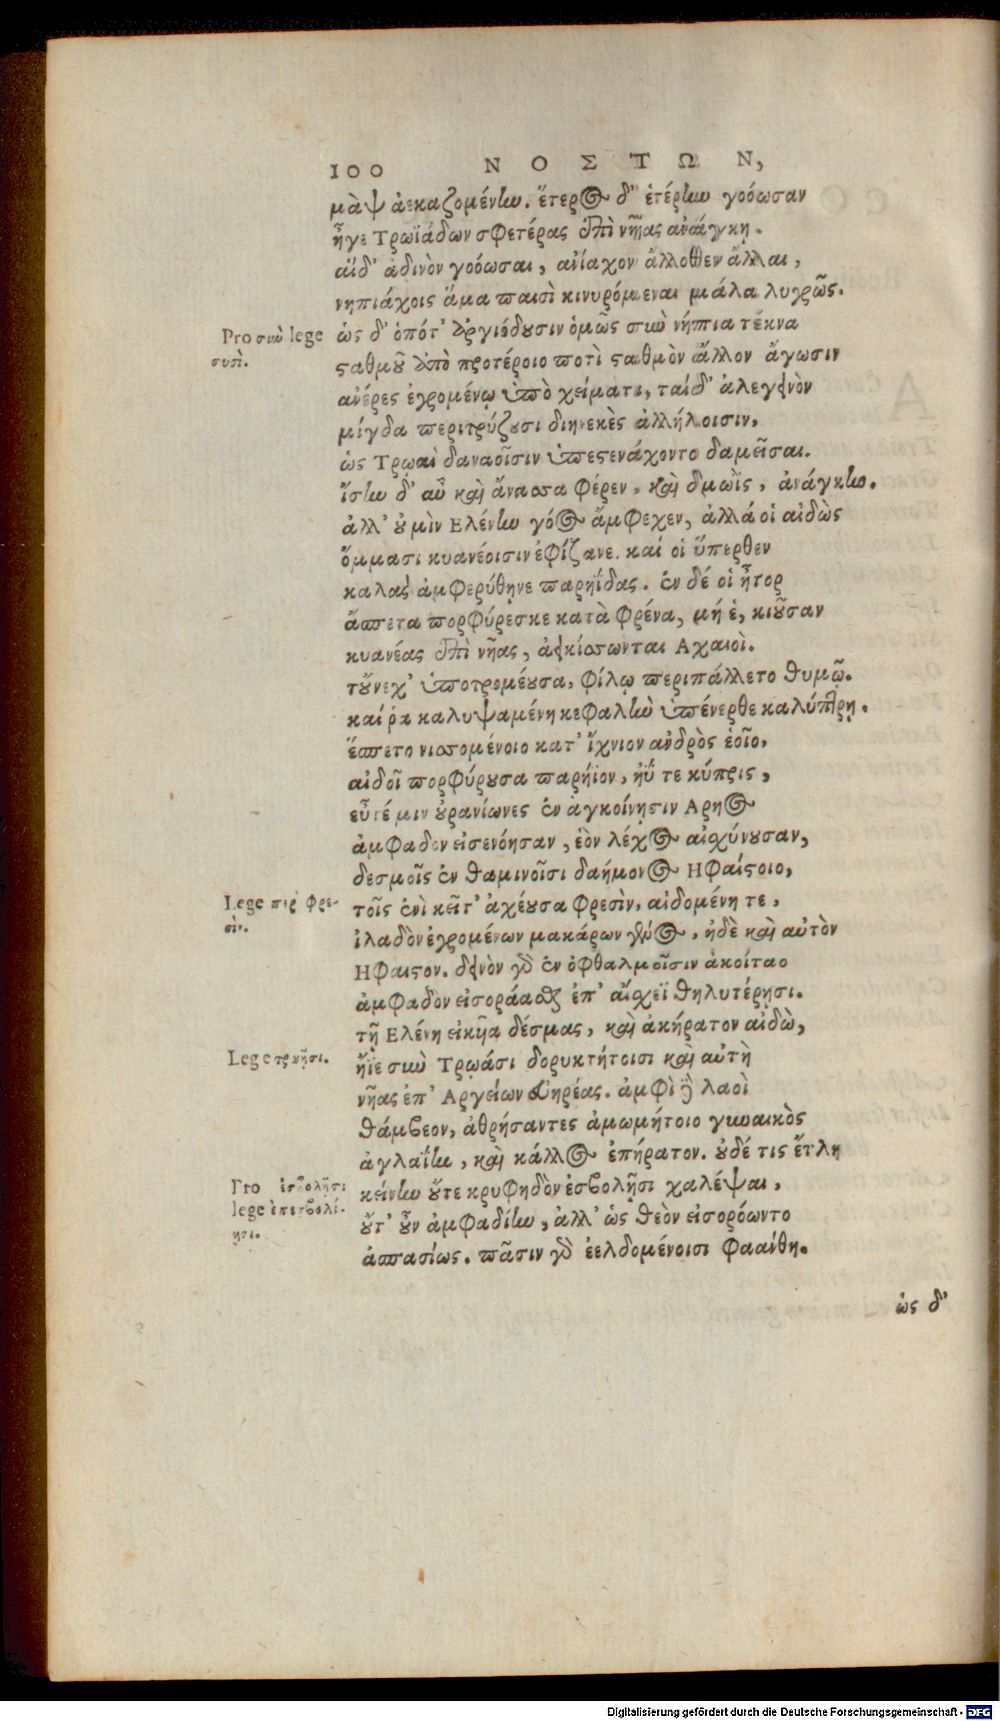 100 ΝΟΣΤΩΝ,
μὰψ ἀεκαζομένην. ἕτερος δ' ἑτέρην γοόωσαν
ἦγε Τρωϊάδων σφετέρας ἐπὶ νῆας ἀνάγκῃ.
αἵδ' ἀδινὸν γοόωσαι, ἀνίαχον ἄλλοθεν ἄλλαι,
νηπιάχοις ἅμα παισὶ κινυρόμεναι μάλα λυγρῶς.
Pro σιωὺ lege
συσὶ.
ὡς δ' ὁπότ' ἀργιόδουσιν ὁμῶς σιωὺ νήπια τέκνα
σαθμοῦ ἀπὸ προτέροιο ποτὶ σαθμὸν ἄλλον ἄγωσιν
ἀνέρες ἐγρομένῳ ὑπὸ χείματι, ταί δ' ἀλεγεινὸν
μίγδα περιτρύζουσι διηνεκὲς ἀλλήλοισιν,
ὡς Τρῳαὶ δαναοῖσιν ὑπεστενάχοντο δαμεῖσαι.
ἴσην δ' αὖ καὶ ἄνασσα φέρεν, καὶ δμωῒς, ἀνάγκην.
ἀλλ' οὐ μὶν Ελένην γόος ἄμφεχεν, ἀλλά οἱ αἰδὼς
ὄμμασι κυανέοισιν ἐφίζανε. καί οἱ ὕπερθεν
καλὰς ἀμφερύθηνε παρηΐδας. ἐν δέ οἱ ἦτορ
ἄσπετα πορφύρεσκε κατὰ φρένα, μή ἑ, κιοῦσαν
κυανέας ἐπὶ νῆας, ἀεικίσσωνται Αχαιοὶ.
τοὔνεχ' ὑποτρομέουσα, φίλῳ περιπάλλετο θυμῷ.
καί ῥα καλυψαμένη κεφαλὴν ὑπένερθε καλύπτρῃ.
ἕσπετο νισσομένοιο κατ' ἴχνιον ἀνδρὸς ἑοῖο,
αἰδοῖ πορφύρουσα παρήϊον, ἠΰτε κύπρις,
εὖτέ μιν οὐρανίωνες ἐν ἀγκοίνῃσιν Αρηος
ἀμφαδὸν εἰσενόησαν, ἑὸν λέχος αἰσχύνουσαν,
δεσμοῖς ἐν θαμινοῖσι δαήμονος Ηφαίστοιο,
Lege περὶ φρε-
σὶν.
τοῖς ἐνὶ κεῖτ' ἀχέουσα φρεσὶν, αἰδομένη τε,
ἰλαδὸν ἐγρομένων μακάρων γένος, ἠδὲ καὶ αὐτὸν
Ηφαιστον. δεινὸν γὰρ ἐν ὀφθαλμοῖσιν ἀκοίταο
ἀμφαδὸν εἰσοράασθαι ἐπ' αἴσχεϊ θηλυτέρῃσι.
τῇ Ελένη εἰκυῖα δέσμας, καὶ ἀκήρατον αἰδὼ,
Lege τρωῇσι.
ἤϊε σιωὺ Τρῳάσι δορυκτήτοισι καὶ αὐτὴ
νῆας ἐπ' Αργείων εὐηρέας. ἀμφὶ δὲ λαοὶ
θάμβεον, ἀθρήσαντες ἀμωμήτοιο γυναικὸς
ἀγλαΐην, καὶ κάλλος ἐπήρατον. οὐδέ τις ἔτλη
Pro ἐσβολῇσι
lege ἐπεσβολί-
ῃσι.
κείνην οὔτε κρυφηδὸν ἐσβολῇσι χαλέψαι,
οὔτ' οὖν ἀμφαδίην, ἀλλ' ὡς θεὸν εἰσορόωντο
ἀσπασίως. πᾶσιν γὰρ ἐελδομένοισι φαάνθη.
ὡς δ'
Digitalisierung gefördert durch die Deutsche Forschungsgemeinschaft - DFG